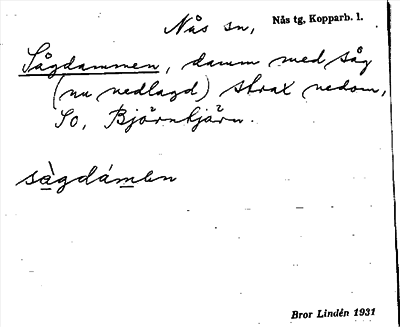 Nås sn, Nås tg, Kopparb. l.
Sågdammen, damm med såg
(nu nedlagd) strax nedom,
So, Björntjärn.
sàgdámen
Bror Lindén 1931